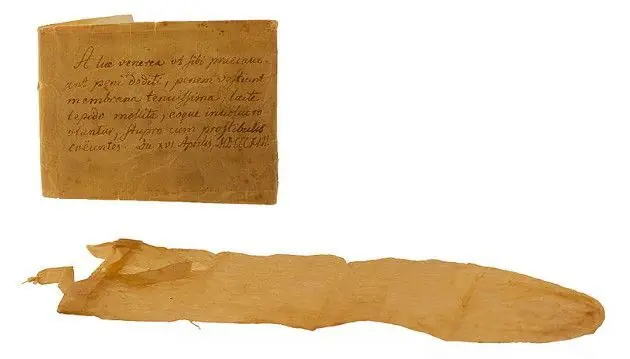 A lue venerea ut sibi praecave-
ant peni dediti, penem vestiunt
membrana tenuissima lacte
tepido mollita, eoque involucro
utuntur, stupro cum prostibulis
coëuntes. Die XVI Aprilis